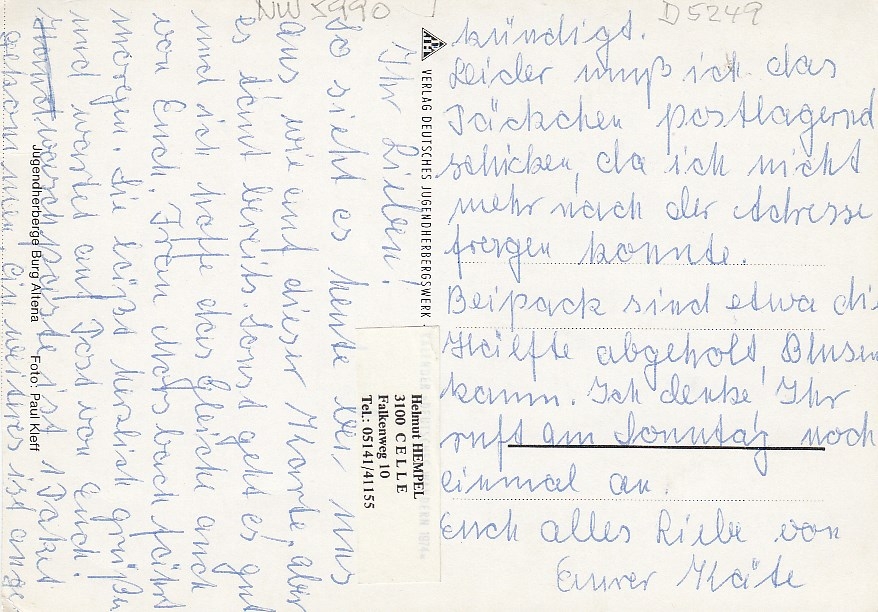 NW 5990
D 5249
Ihr Lieben!
So sieht es heute bei uns
aus, wie auf dieser Karte, aber
es taut bereits. Sonst geht es gut
und ich hoffe das Gleiche auch
von Euch. Frau Morsbach fährt
morgen. Sie läßt herzlich grüßen
und wartet auf Post von Euch.
Handwaschpaste ist 1 Paket
gekommen. Ein weiteres ist ange
kündigt.
Leider muß ich das
Päckchen postlagernd
schicken, da ich nicht
mehr nach der Adresse
fragen konnte.
Beipack sind etwa die
Hälfte abgeholt, Blusen
kaum. Ich denke Ihr
ruft am Sonntag noch
einmal an.
Euch alles Liebe von
Eurer Käte
VERLAG DEUTSCHES JUGENDHERBERGSWERK
Helmut HEMPEL
3100 CELLE
Falkenweg 10
Tel.: 05141/41155
Jugendherberge Burg Altena Foto: Paul Kleff